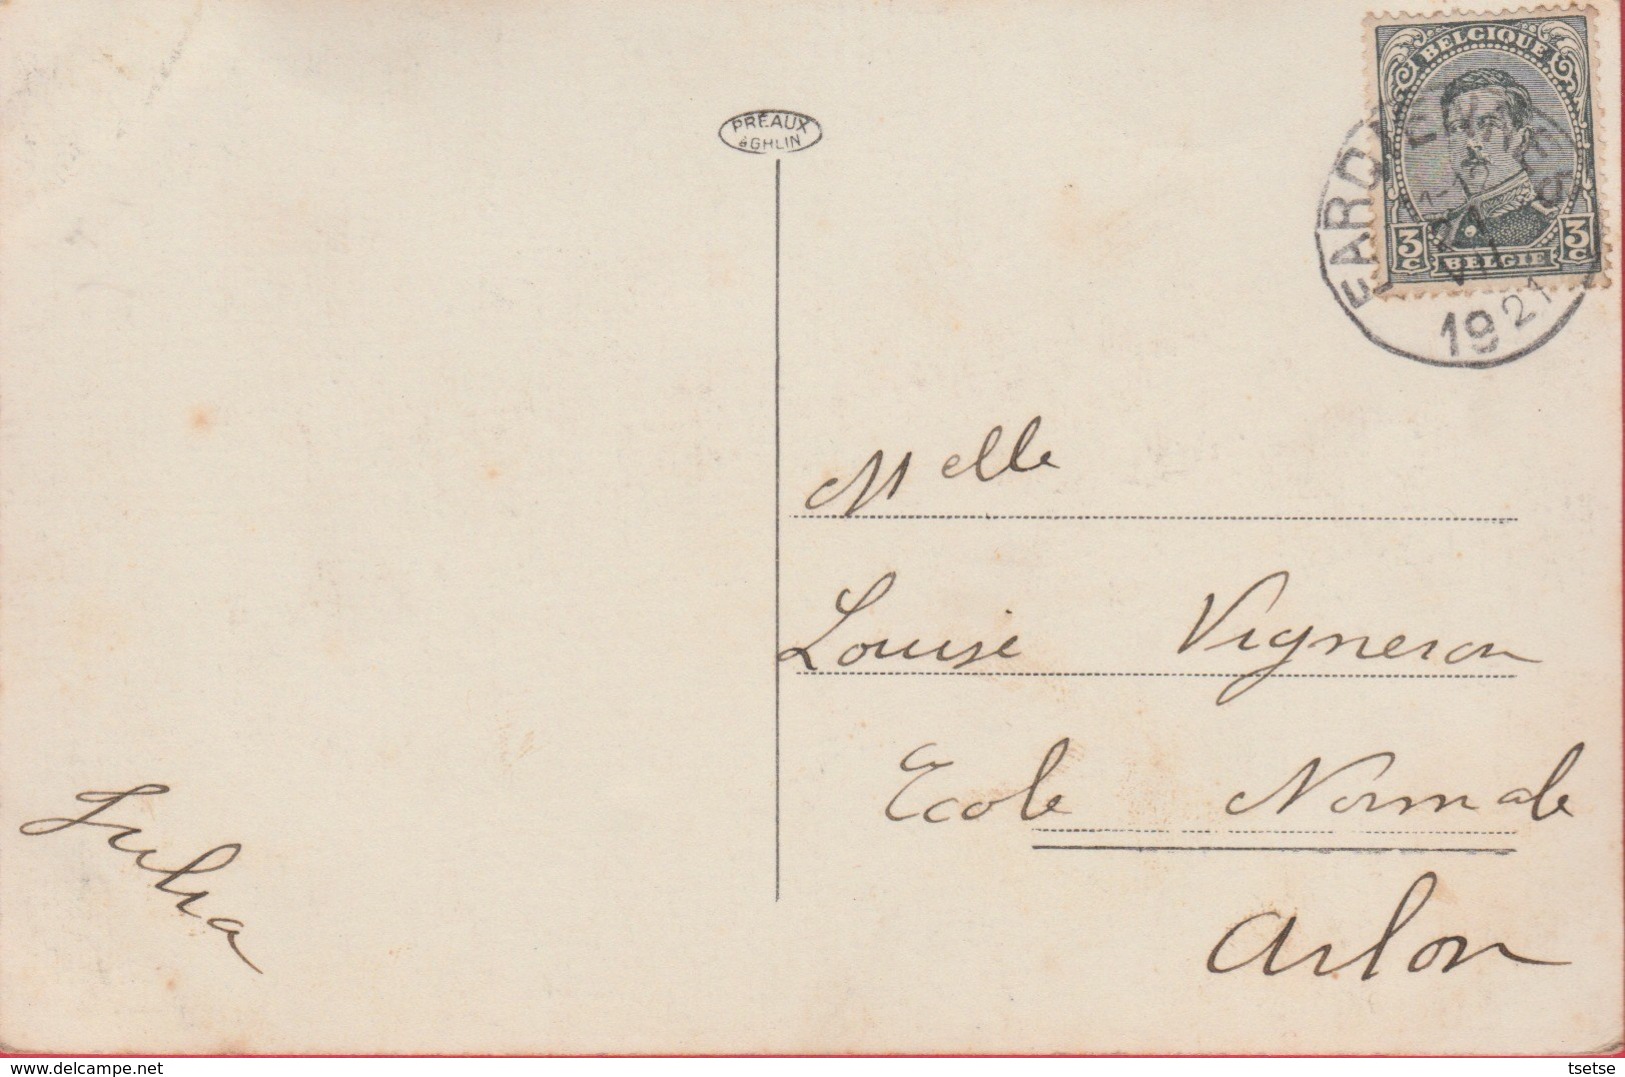 PRÉAUX
à GHLIN
BELGIQUE
3 C
3 C
BELGIE
1921
Melle
Louise Vigneron
Ecole Normale
Arlon
Julia
www.delcampe.net
tsetse